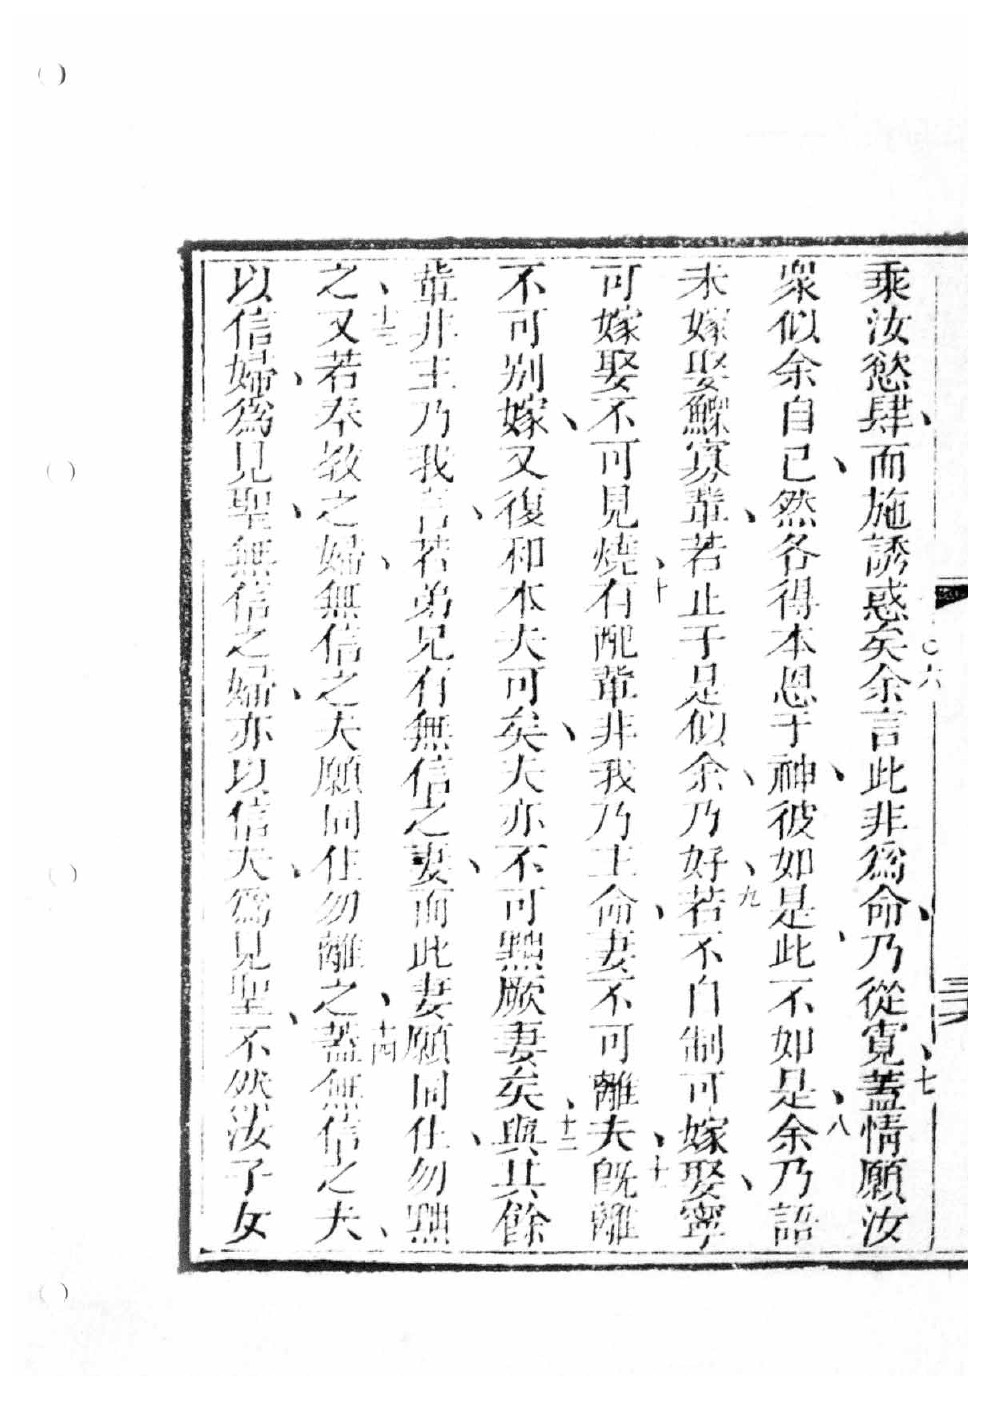 乘汝慾肆、而施誘惑矣○六余言此非為命、乃從寬、七蓋情願汝
衆似余自己、然各得本恩于神、彼如是此、不如是、八余乃語
未嫁娶鰥寡輩、若止于是似余、乃好、九若不自制可嫁娶、寧
可嫁娶不可見燒、十有配輩非我乃主命、妻不可離夫、十一旣離
不可別嫁、又復和本夫可矣、夫亦不可黜厥妻矣、十二與其餘
輩非主乃我言、若弟兄有無信之妻、而此妻願同住、勿黜
之、十三又若奉教之婦、無信之夫願同住勿離之、十四蓋無信之夫、
以信婦、為見聖、無信之婦、亦以信夫、為見聖、不然汝子女